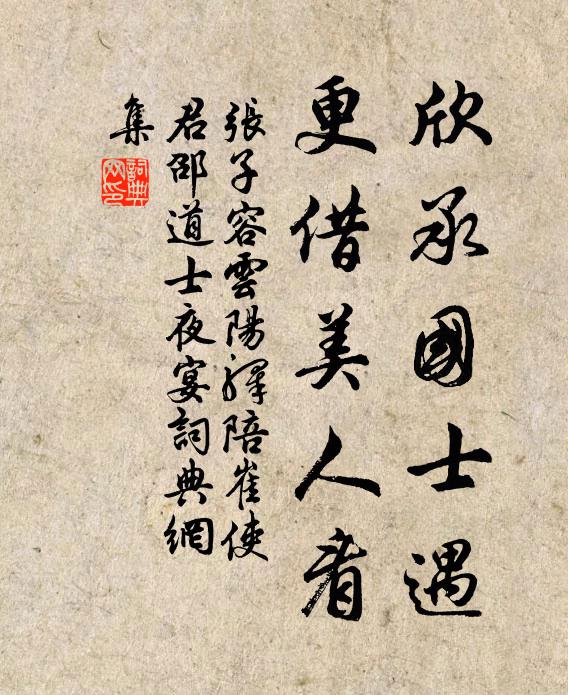 欣承國士遇
更借美人看
張子容雲陽驛陪崔使
君邵道士夜宴詞典網
集
詞典網印